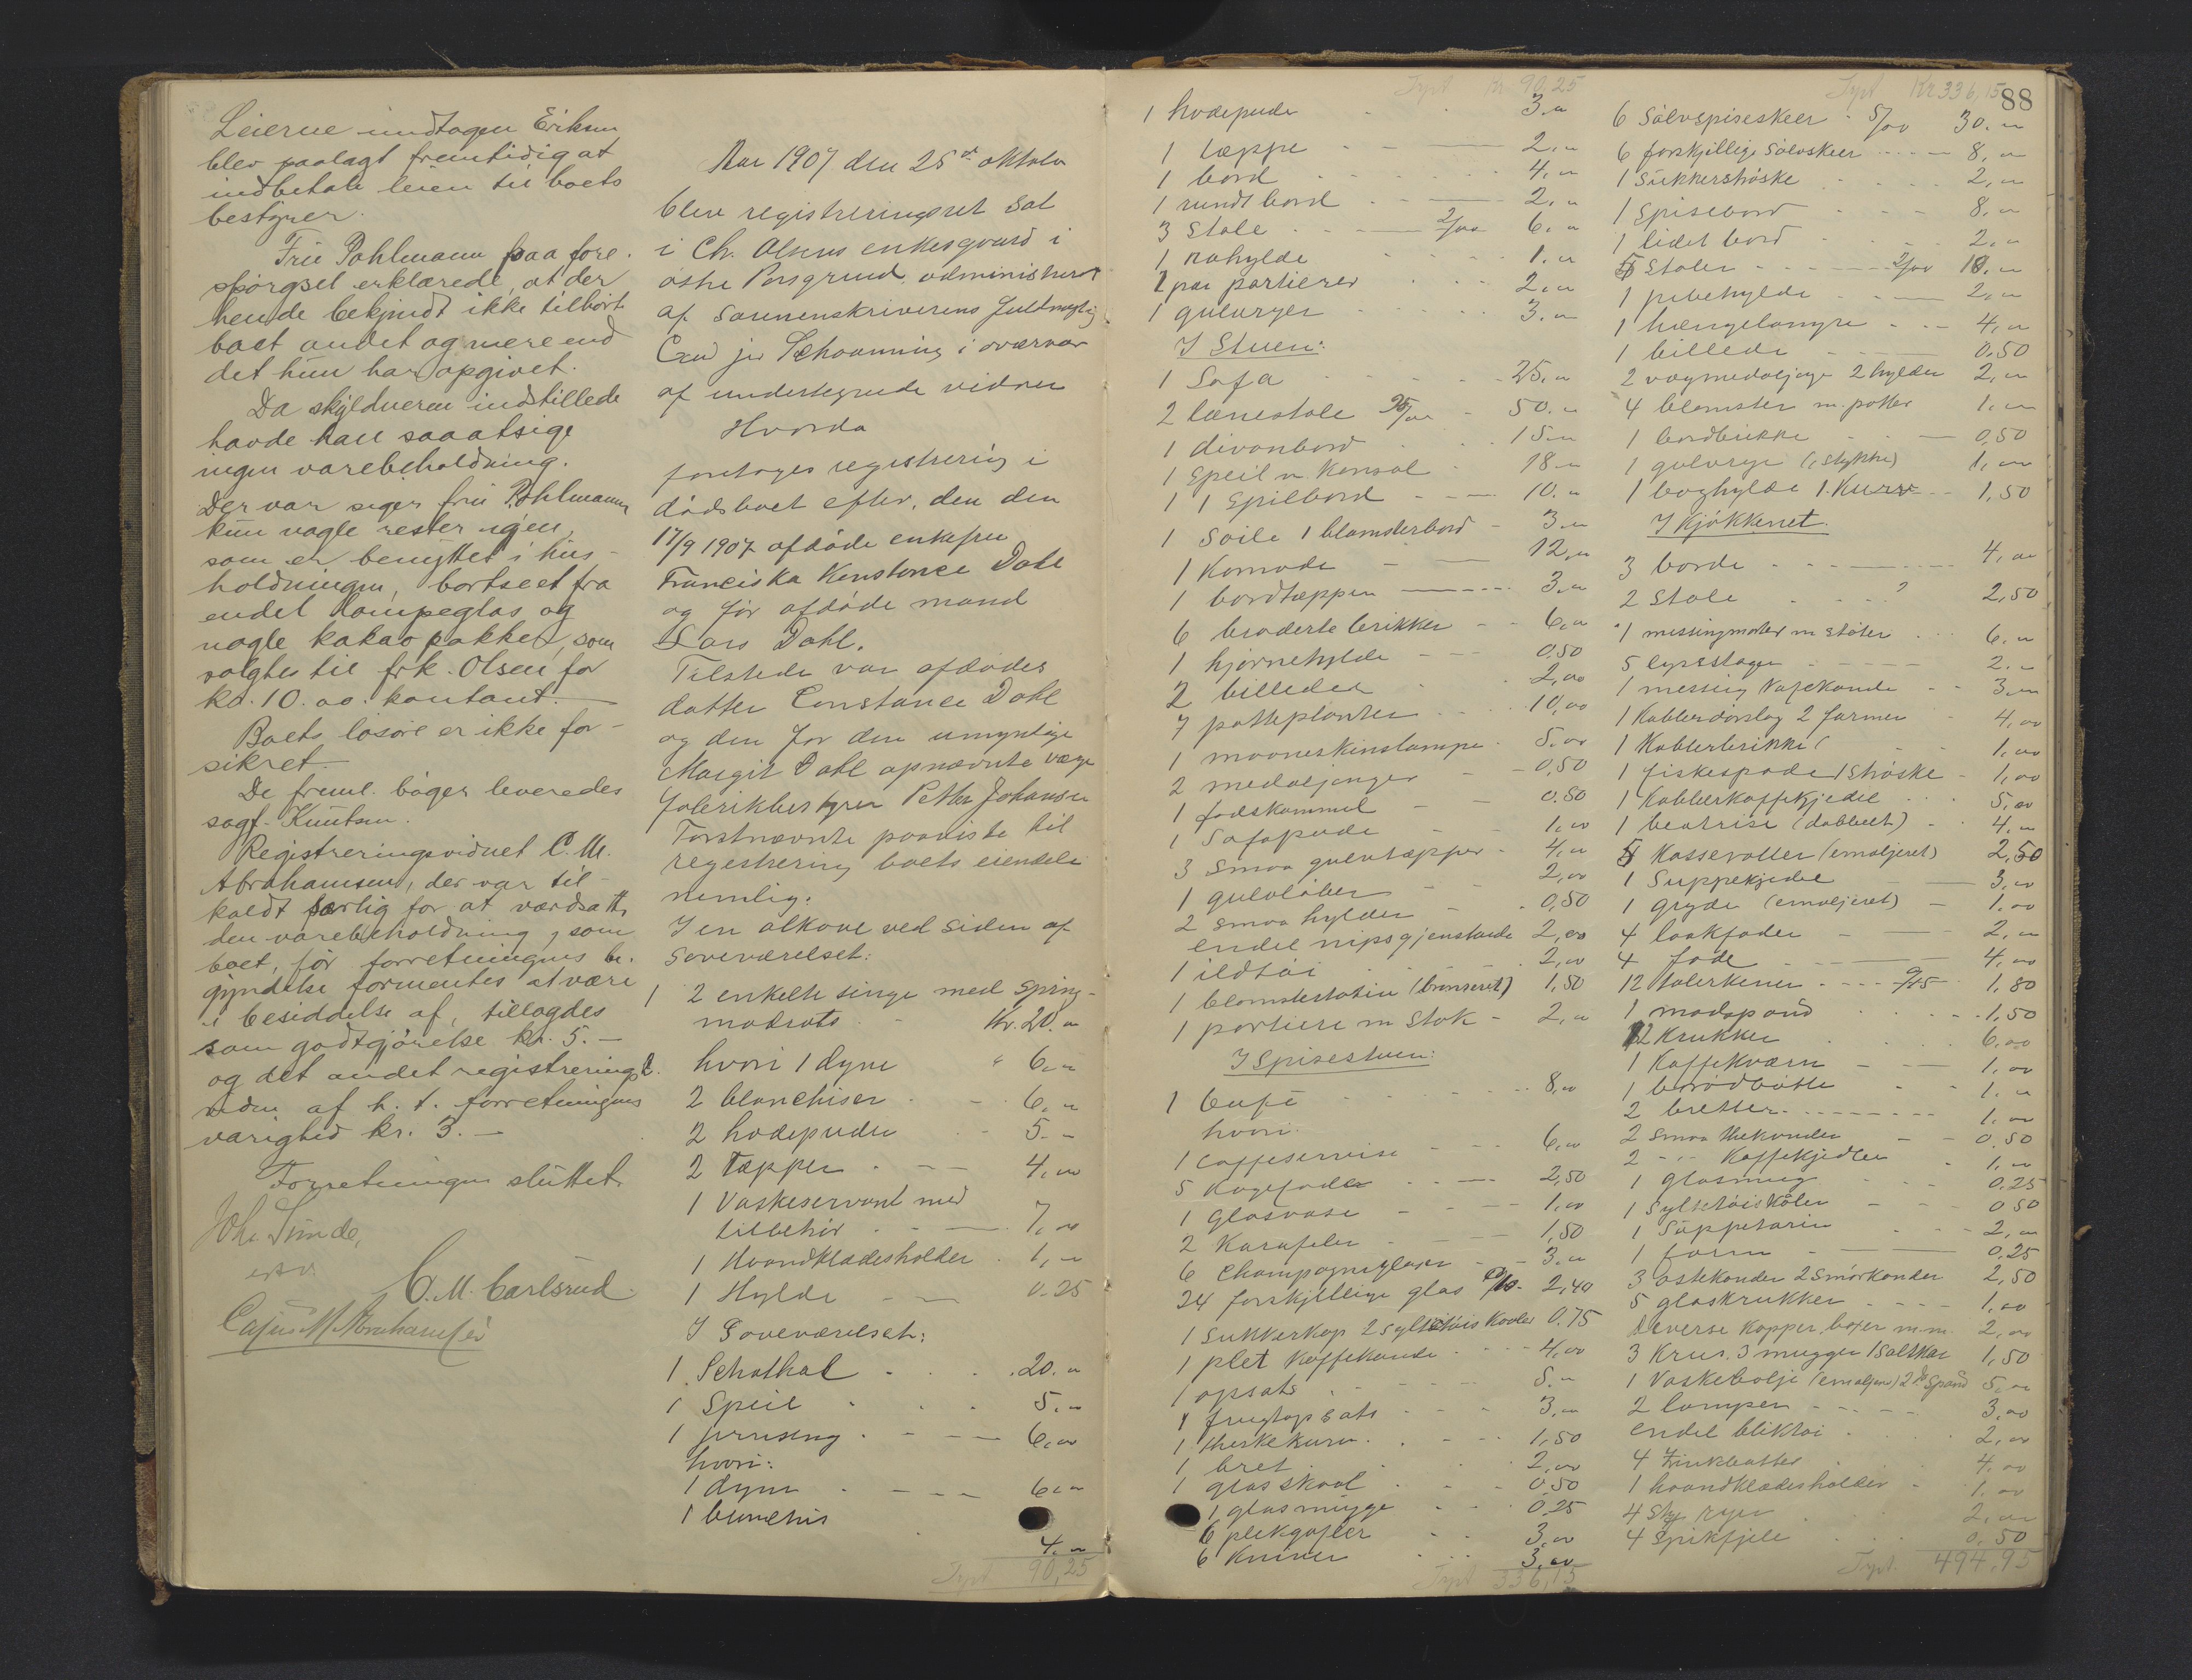 Leierne undtagen Eriksen
blev paalagt fremtidig at
indbetale leien til boets
bestyrer.
Fru Pohlmann paa fore-
spørgsel erklærede, at der
hende bekjendt ikke tilhørt
boet andet og mere end
det hun har opgivet.
Da skyldneren indstillede
havde han saaatsige
ingen varebeholdning.
Der var siger fru Pohlmann
kun nogle rester igjen,
som er benyttet i hus-
holdningen, bortseet fra
endel lampeglas og
nogle kakao pakker, som
solgtes til frk. Olsen for
kr. 10.00 kontant.
Boets løsøre er ikke for-
sikret.
De freml. bøger leveredes
sagf. Knutsen.
Registreringsvidnet C. M.
Abrahamsen, der var til-
kaldt særlig for at værdsætte
den varebeholdning, som
boet, før forretningens be-
gyndelse formentes at være
i besiddelse af, tillagdes
som godtgjørelse kr. 5.—
og det andet registrerings
vidne af h. t. forretningens
varighed kr. 3.—
Forretningen sluttet.
Joh. Sunde,
C. M. Carlsrud.
Cajus M Abrahamsen
Aar 1907 den 25de oktober
blev registreringsret sat
i Ch. Olsens enkesgaard i
østre Porsgrund, administrert
af Sorenskriverens fuldmægtig
Cand jur Schaanning i overvær
af undertegnede vidner
Hvorda
foretoges registrering i
dødsboet efter, den den
17/9 1907 afdøde enkefru
Franciska Konstance Dahl
og før afdøde mand
Lars Dahl.
Tilstede var afdødes
datter Constance Dahl
og den for den umyndige
Margit Dahl opnævnte værge
fabrikbestyrer Petter Johansen
Førstnævnte paaviste til
registrering boets eiendele
nemlig:
I en alkove ved siden af
Soveværelset:
1 2 enkelte senge med spring-
madrats - Kr. 20.00
hvori 1 dyne " 6.00
2 blanchiser - 6.00
2 hodepuder - 5.-
2 Tæpper - 4.00
1 Vaskeservant med
tilbehør - 7.00
1 Haandklædesholder . 1,00
1 Hylde - 0.25
I Soveværelset:
1 Schathol . 20.00
1 Speil . 5.00
1 jernseng - 6.00
hvori:
1 dyne - 6.00
1 blanchis
4.00
Tpt 90,25
Tpt Kr 90,25
1 hodepude 3.00
1 tæppe - 2.00
1 bord 4.00
1 rundt bord - 2.00
3 Stole - 2/00 6.00
1 nohylde 1.00
2 par partierer 2.00
1 gulvryer 3.00
I Stuen:
1 Sofa 25.00
2 lænestole 25/00 - 50.00
1 divanbord 15.00
1 Speil m. Konsol 18.00
1 1 Spilbord - 10.00
1 Søile 1 blomsterbord - 3.00
1 Komode - 12.00
1 bordtæppe - 3.00
6 broderte brikker - 6.00
1 hjørnehylde - 0.50
2 billeder 2,00
7 potteplanter 10,00
1 maaneskinslampe 5.00
2 medaljonger - 0,50
1 fodskammel - 0.50
1 Sofapude - 1,00
3 Smaa gulvtæpper - 4,00
1 gulvløber - 2,00
2 smaa hylder - 0,50
endel nipsgjenstande 2,00
1 ildtøi 2,00
1 blomsterstativ (bronseret) 1,50
1 portiere m Stok - 2,00
I Spisestuen:
1 Bufé 8,00
hvori.
1 Caffeservise 6,00
5 Kagefade 2,50
1 Glasvase - 1,00
2 Karafler 1,50
6 Champagneglasser - 3.00
24 forskjellige glas 10 2,40
1 Sukkerkop 2 Syltetøis Kavler 0.75
1 plet Kaffekande 4,00
1 opsats 5.00
1 frugtopsats 3,00
1 theskekurv 1,50
1 bret 2,00
1 glasskaal 0,50
1 glasmugge 0,25
6 pletgafler 3,00
6 Kniver 3,00
Tpt 336,15
Tpt Kr 336,15
88
6 Sølvspiseskeer - 5/00 30.00
6 forskjellige Sølvskeer - 8,00
1 Sukkerstrøske 2,00
1 Spisebord 8,00
1 lidet bord 2,00
5 Stoler 2/00 18.00
1 pibehylde - 2,00
1 hængelampe - 4,00
1 billede - 0,50
2 vægmedaljonger 2 hylder 2,00
4 blomster m. potter 1,00
1 bordbrikke - 0,50
1 gulvrye (1 stykke) 1,00
1 boghylde 1 Kurv - 1,50
I Kjøkkenet.
3 borde - 4,00
2 Stole 2,50
1 messingmorter m støter 6,00
5 lysestager - 2.00
1 messing Kafekande - 3,00
1 Kobberdørslag 2 former - 4,00
1 Kobberbrikke - 1,00
1 fiskespade 1 Strøske - 1,00
1 Kobberkaffekjedel 5,00
1 beatrise (dobbelt) - 4.00
5 Kasseroller (emaljeret) 2,50
1 Suppekjedel - 3,00
1 gryde (emaljeret) - 1,00
4 laakfader - 2,00
4 fade - 4,00
12 talerkener - 0/15 1,80
1 madspand 1,50
12 Krukker 6.00
1 Kaffekværn - 1,00
1 brødbøtte - 1.00
2 bretter. 1.00
2 smaa thekander - 0,50
2 -"- Kaffekjedler . 1,00
1 glasmug 0,25
1 Syltetøiskåler - 0 50
1 Suppeterin - 2,00
1 form - 0,25
3 ostekander 2 Smørkander 2,50
5 glaskrukker - 1,00
Diverse Kopper, boxer m.m. 2,00
3 Krus, 3 mugger 1 Saltkar 1,50
1 Vaskebolje (emaljeret) 2 do Spand 5,00
2 lamper 3,00
endel bliktøi 2,00
4 Zinkbøtter 4,00
1 haandklædesholder - 1,00
4 Sty. ryer 2,00
4 Spikfjele 0,50
Tpt. 494,95